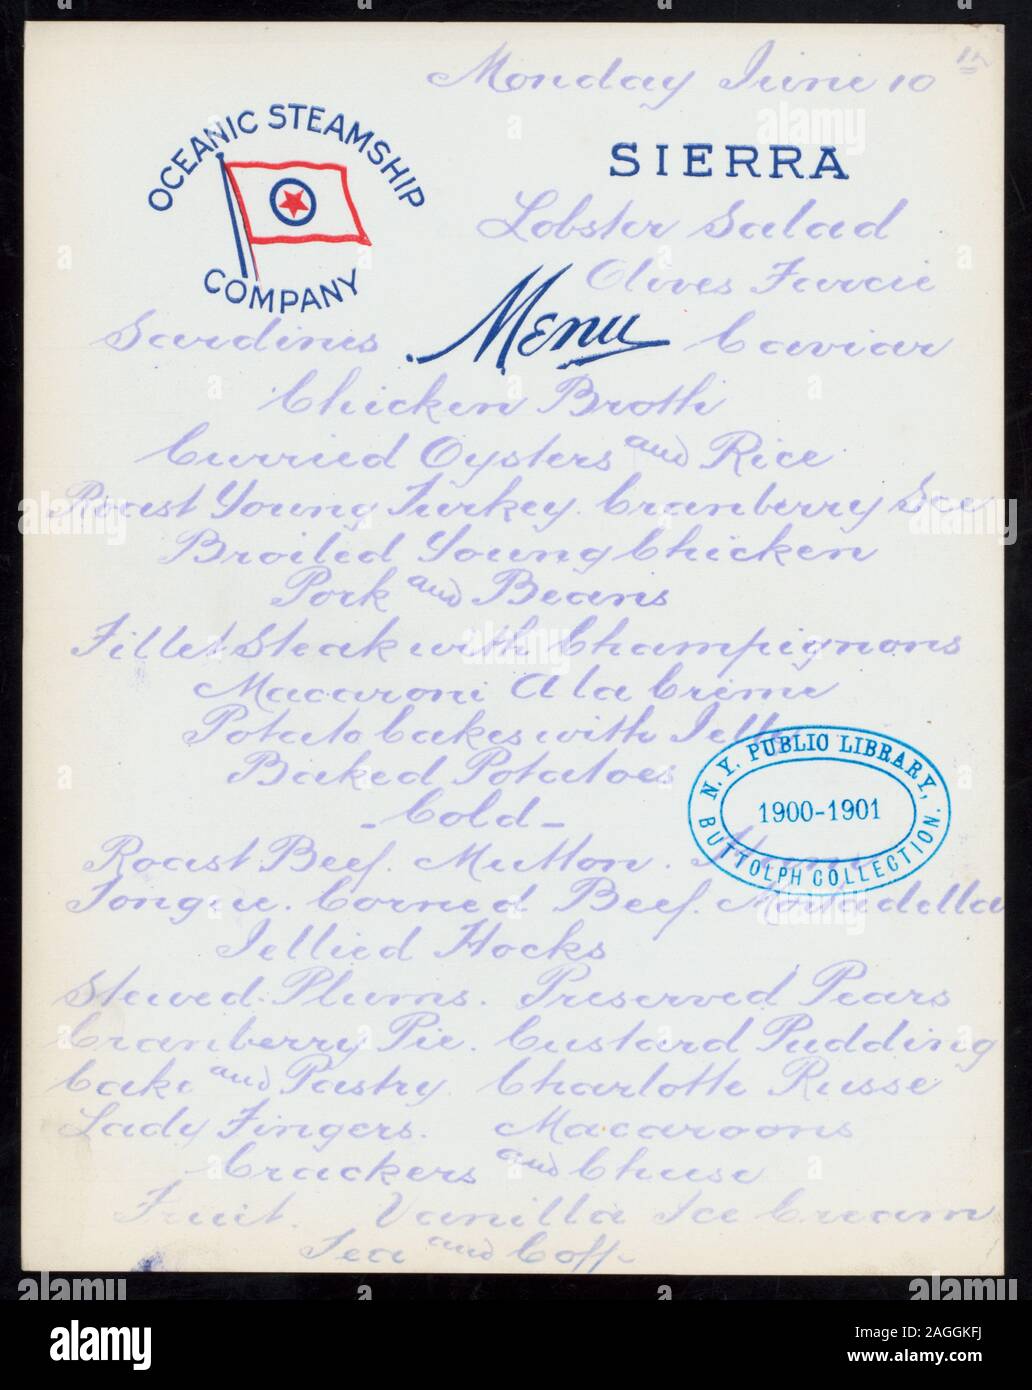 Monday June 10th
OCEANIC STEAMSHIP
COMPANY
SIERRA
Lobster Salad
Olives Farcie
Sardines Menu Caviar
Chicken Broth
Curried Oysters and Rice
Roast Young Turkey. Cranberry Sce
Broiled Young Chicken
Pork and Beans
Fillet Steak with Champignons
Macaroni A la Crème
Potato Cakes with Jelly
Baked Potatoes
- Cold -
Roast Beef. Mutton. Ham
Tongue. Corned Beef. Mortadella
Jellied Hocks
Stewed Plums. Preserved Pears
Cranberry Pie. Custard Pudding
Cake and Pastry. Charlotte Russe
Lady Fingers. Macaroons
Crackers and Cheese
Fruit. Vanilla Ice Cream
Tea and Coff
N. Y. PUBLIC LIBRARY,
1900-1901
BUTTOLPH COLLECTION.
alamy
Image ID: 2AGGKFJ
www.alamy.com